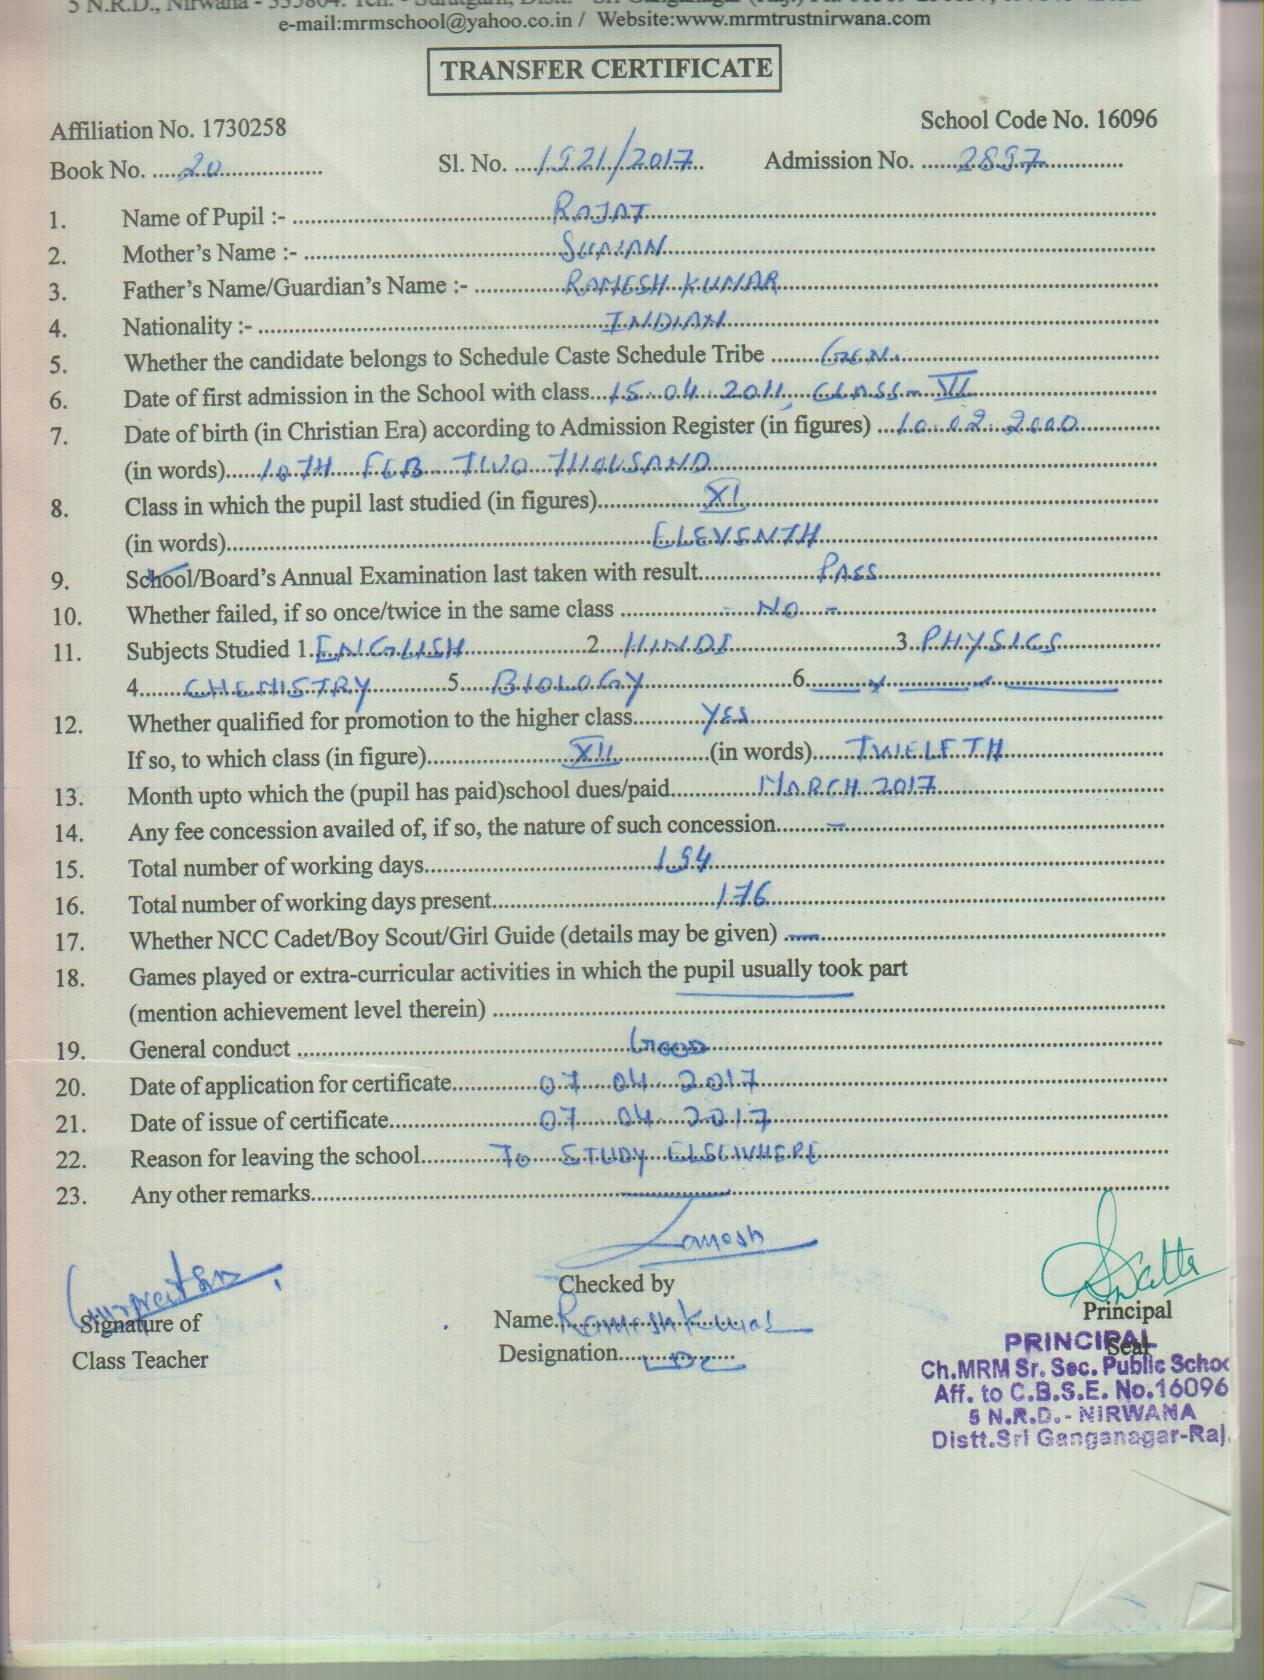 5 N.R.D., Nirwana - 335804. Teh. - Suratgarh, Distt. - Sri Ganganagar (Raj.)
e-mail:mrmschool@yahoo.co.in / Website:www.mrmtrustnirwana.com
TRANSFER CERTIFICATE
Affiliation No. 1730258 School Code No. 16096
Book No. 20 Sl. No. 1921/2017 Admission No. 2897
1. Name of Pupil :- RAJAT
2. Mother's Name :- SUMAN
3. Father's Name/Guardian's Name :- RAMESH KUMAR
4. Nationality :- INDIAN
5. Whether the candidate belongs to Schedule Caste Schedule Tribe GEN.
6. Date of first admission in the School with class 15.04.2011, CLASS-VI
7. Date of birth (in Christian Era) according to Admission Register (in figures) 10.02.2000
(in words) 10TH FEB TWO THOUSAND
8. Class in which the pupil last studied (in figures) XI
(in words) ELEVENTH
9. School/Board's Annual Examination last taken with result PASS
10. Whether failed, if so once/twice in the same class - NO -
11. Subjects Studied 1. ENGLISH 2. HINDI 3. PHYSICS
4. CHEMISTRY 5. BIOLOGY 6.
12. Whether qualified for promotion to the higher class YES
If so, to which class (in figure) XII (in words) TWELFTH
13. Month upto which the (pupil has paid)school dues/paid MARCH 2017
14. Any fee concession availed of, if so, the nature of such concession -
15. Total number of working days 194
16. Total number of working days present 176
17. Whether NCC Cadet/Boy Scout/Girl Guide (details may be given) -
18. Games played or extra-curricular activities in which the pupil usually took part
(mention achievement level therein)
19. General conduct GOOD
20. Date of application for certificate 07 04 2017
21. Date of issue of certificate 07 04 2017
22. Reason for leaving the school TO STUDY ELSEWHERE
23. Any other remarks
Ramesh
Checked by
Signature of
Class Teacher
Name Ramesh Kumar
Designation LDC
Principal
Seal
PRINCIPAL
Ch.MRM Sr. Sec. Public Schoo
Aff. to C.B.S.E. No.16096
5 N.R.D.- NIRWANA
Distt.Sri Ganganagar-Raj.